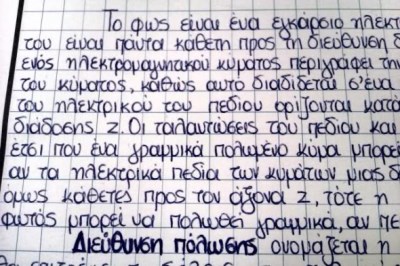 Το φως είναι ένα εγκάρσιο ηλεκτ
του είναι πάντα κάθετη προς τη διεύθυνση δ
ενός ηλεκτρομαγνητικού κύματος περιγράφει την
του κύματος, καθώς αυτό διαδίδεται σ'ένα
του ηλεκτρικού του πεδίου ορίζονται κατά
διάδοσης z. Οι ταλαντώσεις του πεδίου και
έτσι που ένα γραμμικά πολωμένο κύμα μπορεί
αν τα ηλεκτρικά πεδία των κυμάτων μιας δέ
όμως κάθετες προς τον άξονα z, τότε η
φωτός μπορεί να πολωθεί γραμμικά, αν πε
Διεύθυνση πόλωσης ονομάζεται η